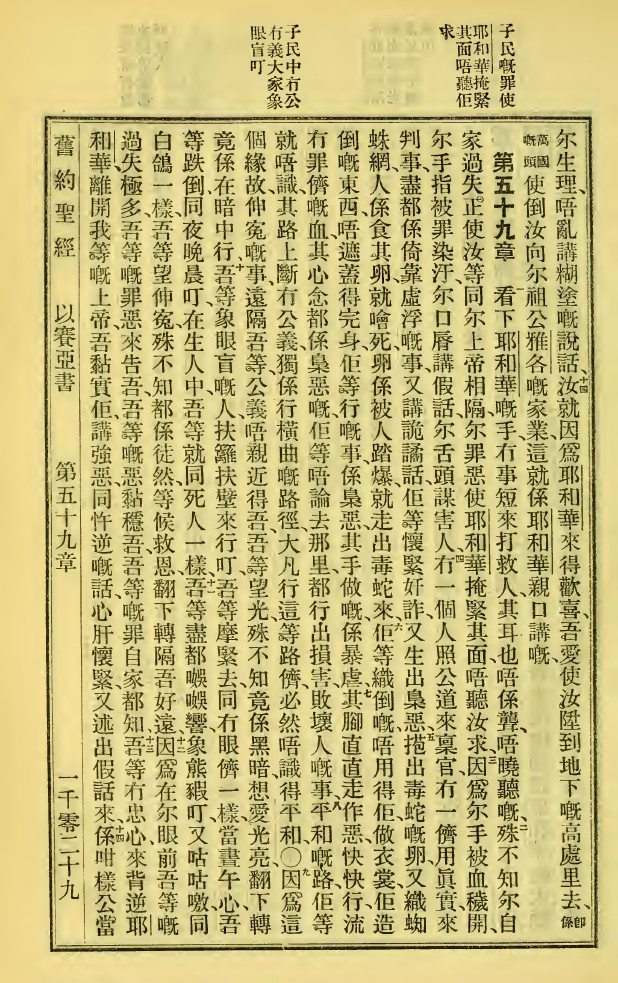 子民嘅罪使
耶和華掩緊
其面唔聽佢
求
子民中冇公
冇義大家象
眼盲叮
尔生理、唔亂講糊塗嘅說話、十四汝就因爲耶和華來得歡喜、吾愛使汝陞到地下嘅高處里去、卽係
萬國嘅頭使倒汝向尔祖公雅各嘅家業、這就係耶和華親口講嘅、
第五十九章　一看下耶和華嘅手冇事短來打救人、其耳也唔係聾、唔曉聽嘅、二殊不知尔自
家過失、正使汝等同尔上帝相隔、尔罪惡使耶和華掩緊其面、唔聽汝求、三因爲尔手被血穢開、
尔手指被罪染汙、尔口唇講假話、尔舌頭謀害人、四冇一個人照公道來稟官、冇一儕用眞實來
判事、盡都係倚靠虛浮嘅事、又講詭譎話、佢等懷緊奸詐、又生出梟惡、五菢出毒蛇嘅卵、又織蜘
蛛網、人係食其卵就噲死、卵係被人踏爆、就走出毒蛇來、六佢等織倒嘅、唔用得佢做衣裳、佢造
倒嘅東西、唔遮蓋得完身、佢等行嘅事係梟惡、其手做嘅、係暴虐、七其腳直直走作惡、快快行流
冇罪儕嘅血、其心念都係梟惡嘅、佢等唔論去那里、都行出損害敗壞人嘅事、八平和嘅路、佢等
就唔識、其路上斷冇公義、獨係行橫曲嘅路徑、大凡行這等路儕、必然唔識得平和〇九因爲這
個緣故、伸冤嘅事、遠隔吾等、公義唔親近得吾、吾等望光、殊不知竟係黑暗、想愛光亮、翻下轉
竟係在暗中行、十吾等象眼盲嘅人、扶籬扶壁來行叮、吾等摩緊去、同冇眼儕一樣、當晝午心、吾
等跌倒同夜晚晨叮、在生人中、吾等就同死人一樣、十一吾等盡都㗅㗅響、象熊豭叮、又咕咕噭、同
白鴿一樣、吾等望伸冤、殊不知都係徒然、等候救恩、翻下轉隔吾好遠、十二因爲在尔眼前、吾等嘅
過失極多、吾等嘅罪惡來告吾、吾等嘅惡黏穩吾、吾等嘅罪自家都知、十三吾等冇忠心、來背逆耶
和華、離開我等嘅上帝、吾黏實佢、講強惡同忤逆嘅話、心肝懷緊、又述出假話來、十四係咁樣、公當
舊約聖經　以賽亞書　第五十九章　一千零二十九